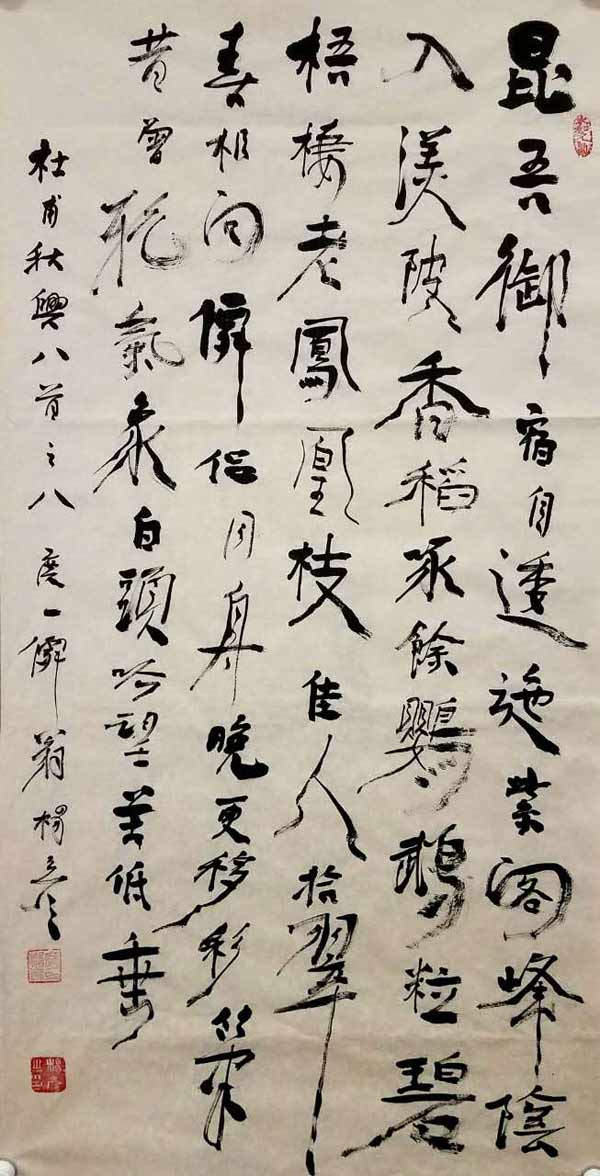 昆吾御宿自逶迤紫閣峰陰
入渼陂香稻啄餘鸚鵡粒碧
梧棲老鳳凰枝佳人拾翠
春相問僊侶同舟晚更移彩筆
昔曾乾氣象白頭吟望苦低垂
杜甫秋興八首之八 度一僊翁楊